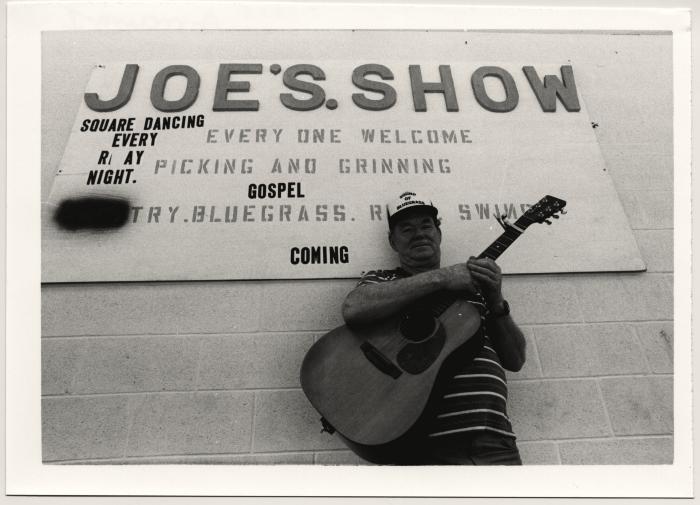 JOE'S. SHOW
SQUARE DANCING
EVERY
R AY
NIGHT.
EVERY ONE WELCOME
PICKING AND GRINNING
GOSPEL
TRY. BLUEGRASS. R SWING
COMING
SOUND
OF
BLUEGRASS